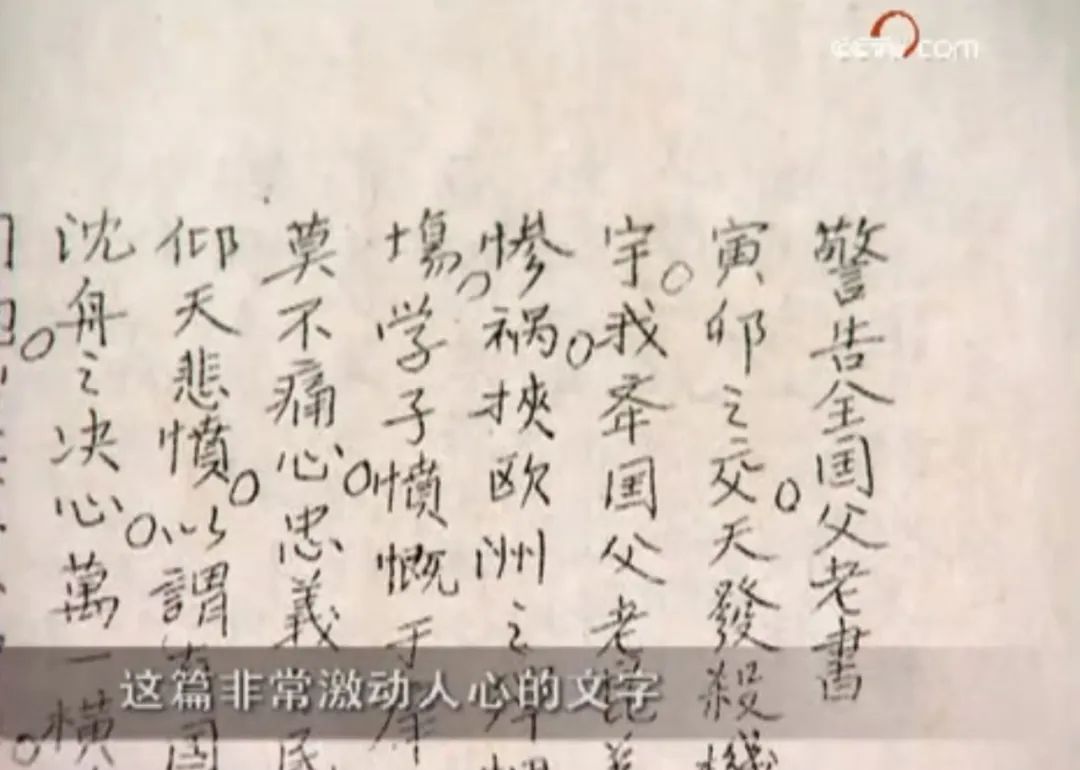 CCTV.com
警告全国父老書
寅卯之交天發殺機
宇我举国父老
惨祸挾欧洲之
塲学子憤慨于
莫不痛心忠義
仰天悲憤以謂
沈舟之决心萬一横
这篇非常激动人心的文字